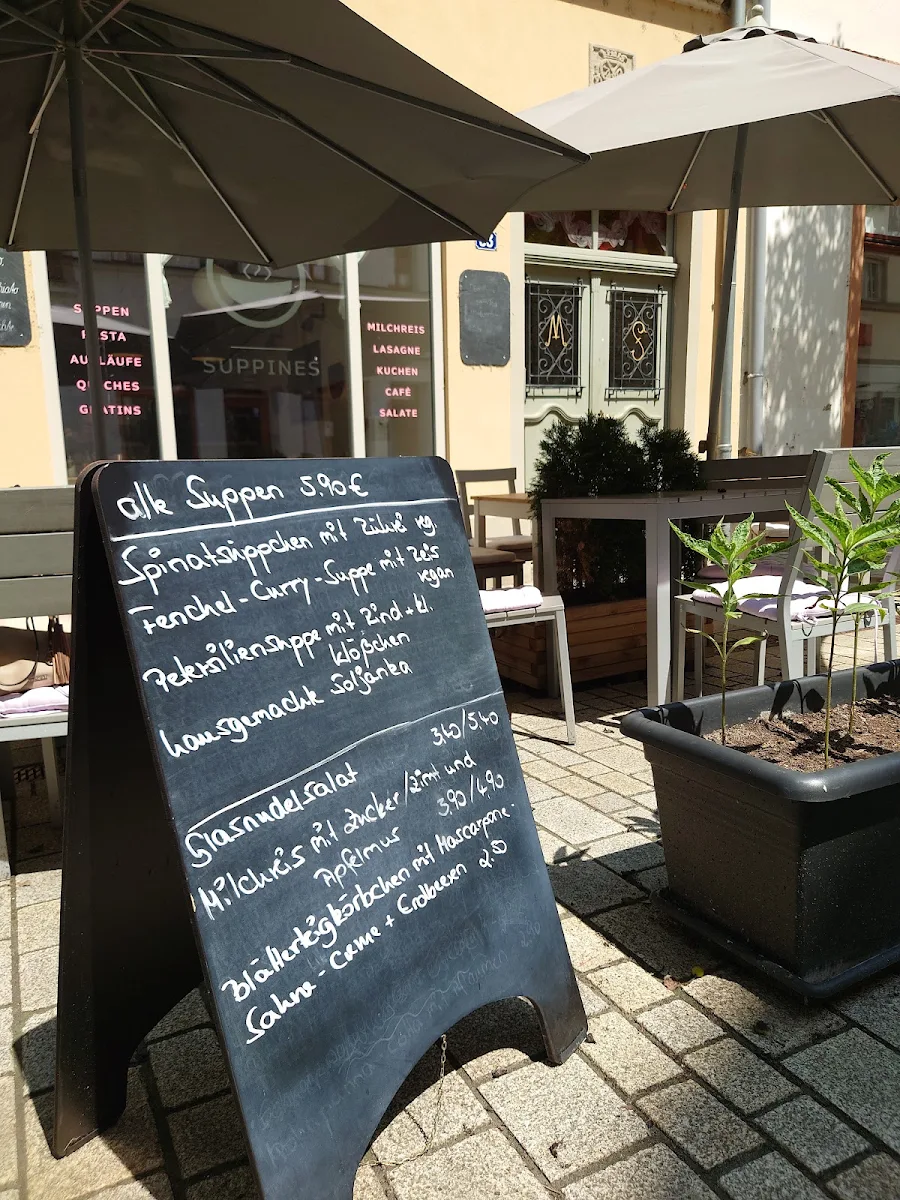 SUPPEN
PASTA
AUFLÄUFE
QUICHES
GRATINS
SUPPINES
MILCHREIS
LASAGNE
KUCHEN
CAFÈ
SALATE
M
S
alle Suppen 5.90€
Spinatsüppchen mit Zuckei veg.
Fenchel-Curry-Suppe mit Reis
vegan
Petersiliensuppe mit Rind + kl.
Klößchen
hausgemachte Soljanka
Glasnudelsalat 3,40/5,40
Milchreis mit Zucker/Zimt und
Apfelmus 3,90/4,90
Blätterteigkörbchen mit Mascarpone-
Sahne-Creme + Erdbeeren 2.50